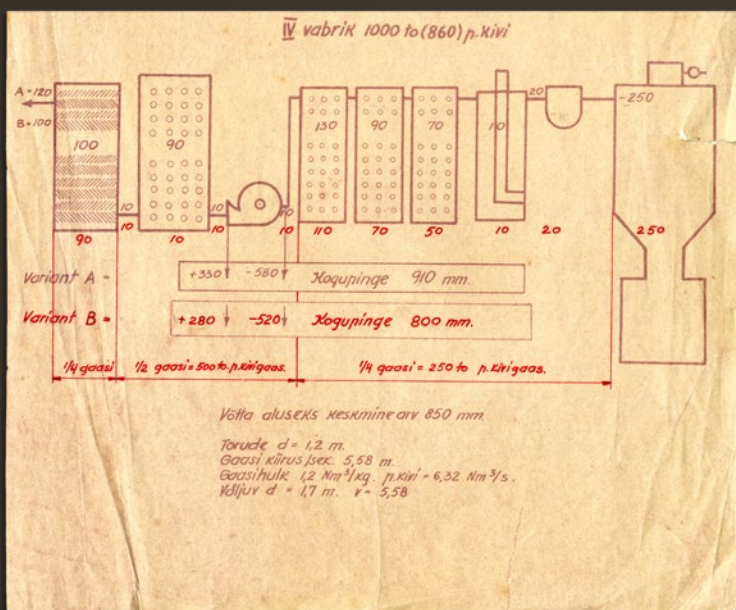 IV vabrik 1000 to (860) p.kivi
A = 120
B = 100
100
90
130
90
70
10
20
-250
10
10
90
10
10
10
10
110
70
50
10
20
250
Variant A =
+330
-580
Kogupinge 910 mm.
Variant B =
+280
-520
Kogupinge 800 mm.
1/4 gaasi
1/2 gaasi = 500 to p.kivigaas.
1/4 gaasi = 250 to p.kivigaas.
Võtta aluseks keskmine arv 850 mm.
Torude d = 1,2 m.
Gaasi kiirus/sek. 5,58 m.
Gaasihulk 1,2 Nm³/kg. p.kivi - 6,32 Nm³/s.
Väljuv d = 1,7 m. v = 5,58